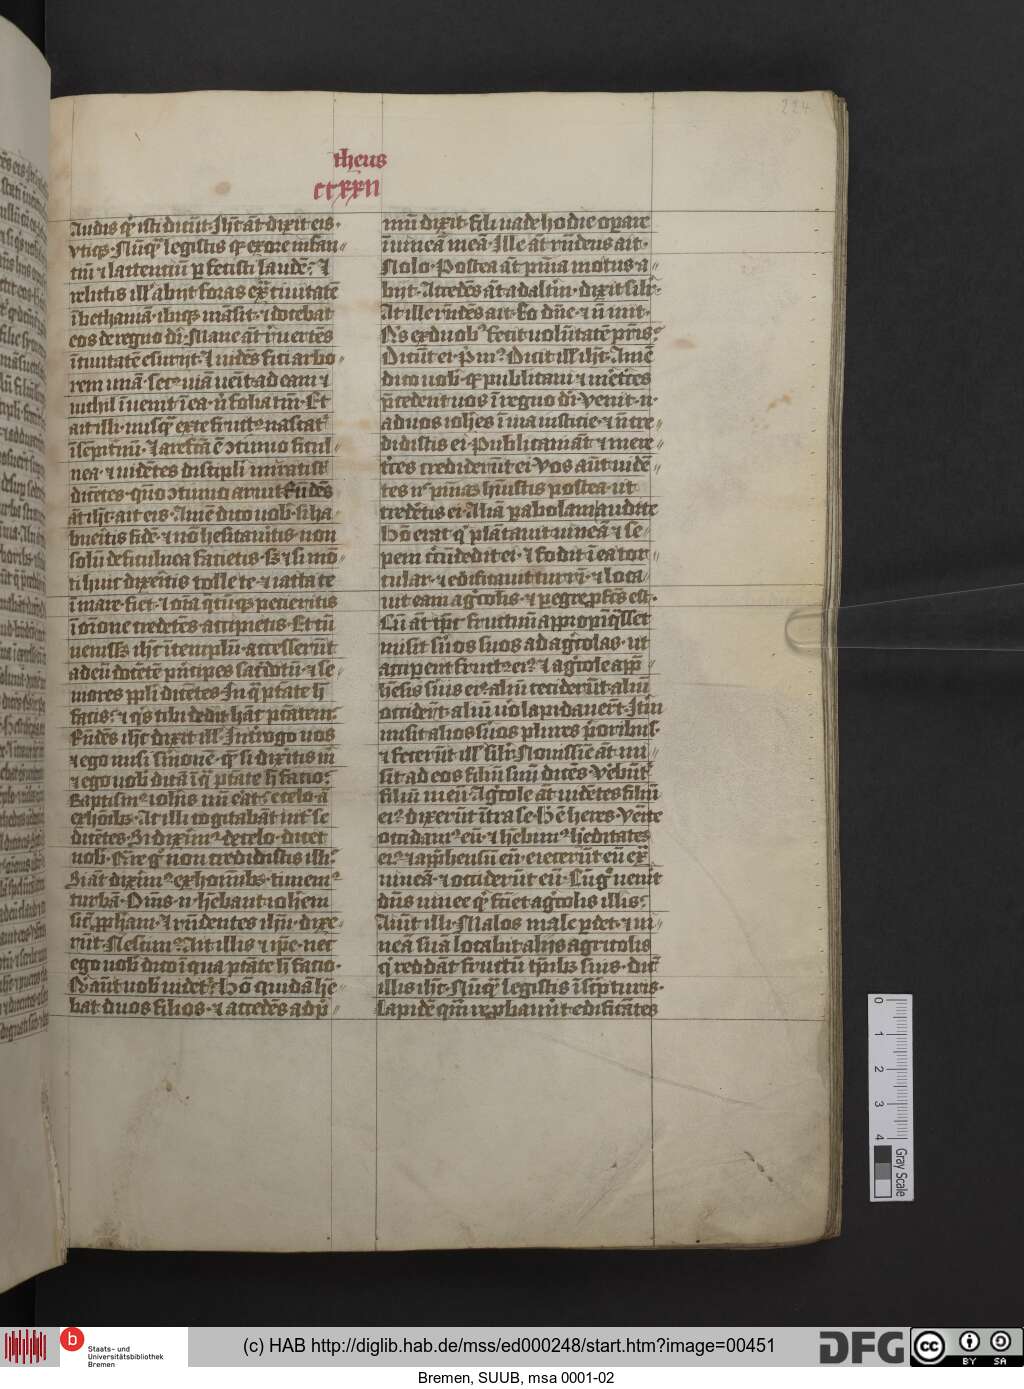 224
theus
ccxxii
Audis qͥ isti dicūt· Ih̄c āt dixit eis·
vtiqꝫ· Nūqͣ legistis qꝛ ex ore infan
tiū ⁊ lactentiū ꝑfecisti laudē: ⁊
relictis ill' abijt foras ext͂ ciuitatē
ī bethaniā· ibiqꝫ māsit· ⁊ docebat
eos de regno dī· Mane āt reuertēs
ī ciuitatē esurijt· ⁊ uidēs fici arbo
rem unā· secꝰ uiā uēit ad eam ⁊
nichil īuenit ī ea· nͥ folia tm̄· Et
ait illi· nūsqͣ ex te fructꝰ nascat᷑
ī sēpitnū· ⁊ arefcā ē ꝯtinuo ficul
nea· ⁊ uidētes discipli mirati sͭ
dicētes· quō ꝯtinuo aruit· Rn̄dēs
āt ih̄c· ait eis· Amē dico uob· si ha
bueitis fidē· ⁊ nō hesitauitis· non
solū de ficulnea facietis· sꝫ ⁊ si mō
ti huic dixeitis tolle te· ⁊ iacta te
ī mare· fiet· ⁊ oīa q̄cūqꝫ petieritis
ī orōne credetēs· accipietis· Et cū
ueniss; ih̄c ī templū· accesserūt
ad eū docētē pͥncipes sacdotū· ⁊ se
niores pp̄li dicētes· In q̄ ptāte h̄
facis: ⁊ qͥs tibi dedit hāc ptātem:
Rn̄dēs ih̄c dixit ill'· Intͬrogo uos
⁊ ego unū smonē· qͣ si dixitis m̄
⁊ ego uob dicā ī q̄ ptate h̄ facio:
Baptismꝰ ioh̄nis un̄ eat· e celo· ā
ex hōibꝫ· At illi cogitabāt intͬ se
dicētes· Si dixim̄ꝰ de celo· dicet
uob· Qͣre gͦ non credidistis illi:
Si āt dixim̄ꝰ ex hominibꝫ· timemꝰ
turbā· Om̄s· n̄· hēbant ioh̄em
sic̄ ꝓpham· ⁊ rn̄dentes ih̄u· dixe
rūt· Nescimꝰ· Ait illis ⁊ ip̄e· nec
ego uob dico ī qua ptāte h̄ facio·
Qͥd āut uob uidet᷑: Hō quidā hē
bat duos filios· ⁊ accedēs ad pͥ
mū dixit· fili uade hodie operare
ī uineā meā· Ille āt rn̄dens ait·
Nolo· Postea āt pnīa motus· a
bijt· Accedēs āt ad altm̄· dixit silr·
At ille rn̄dēs ait· Eo dn̄e· ⁊ n̄ iuit·
Qͥs ex duobꝰ fecit uolūtatē pris:
Dicūt ei· Pͥmꝰ· Dicit ill' ih̄c· Amē
dico uob· qꝛ publicani ⁊ metͥces
p̄cedent uos ī regno dī· Venit· n̄·
ad uos ioh̄es ī uia iusticie· ⁊ n̄ cre
didistis ei· Publicani āt ⁊ mere
tͥces crediderūt ei· Vos aūt uidē
tes nͨ pnīaꝫ h̄uistis postea· ut
credetis ei· Aliā ꝑabolam audite
Hō erat qͥ plātauit uineā· ⁊ se
pem cͥcūdedit ei· ⁊ fodit ī ea tor
cular· ⁊ edificauit turrī· ⁊ loca
uit eam agͥcolis· ⁊ ꝑegre ꝓfcs est·
Cū āt tp̄c fructuū appropīqͣsset
misit suos suos ad agͥcolas· ut
acciꝑent fructꝰ eiꝰ: ⁊ agͥcole app̄
hēsis suis eiꝰ aliū ceciderūt· aliū
occidert· aliū uo lapidauert· Itͥu
misit alios suos plures pͥoribuſ·
⁊ fecerūt ill' silr· Nouissīe āt mi
sit ad eos filiū suū dicēs· Vebūt᷑
filiū meū· Agͥcole āt uidētes filiū
eiꝰ dixerūt ītra se· Hͥc ē heres· Venͥte
occidamꝰ eū· ⁊ hēbimꝰ h̄editates
eiꝰ· ⁊ app̄hensū eū· eiecerūt eū ext͂
uineā· ⁊ occiderūt eū· Cū gͦ uenit
dn̄s uinee qͥd fciet agͥcolis illis:
Aiūt illi· Malos male ꝑdet· ⁊ ui
neā suā locabit alijs agricolis
qͥ reddāt fructū tp̄ibꝫ suis· dicͭ
illis ih̄c· Nūqͣ legistis ī scͥpturis·
Lapidē quē reꝓbauerūt edificātes
0
1
2
3
4
Gray Scale
Staats- und
Universitätsbibliothek
Bremen
(c) HAB http://diglib.hab.de/mss/ed000248/start.htm?image=00451
DFG
cc BY SA
Bremen, SUUB, msa 0001-02